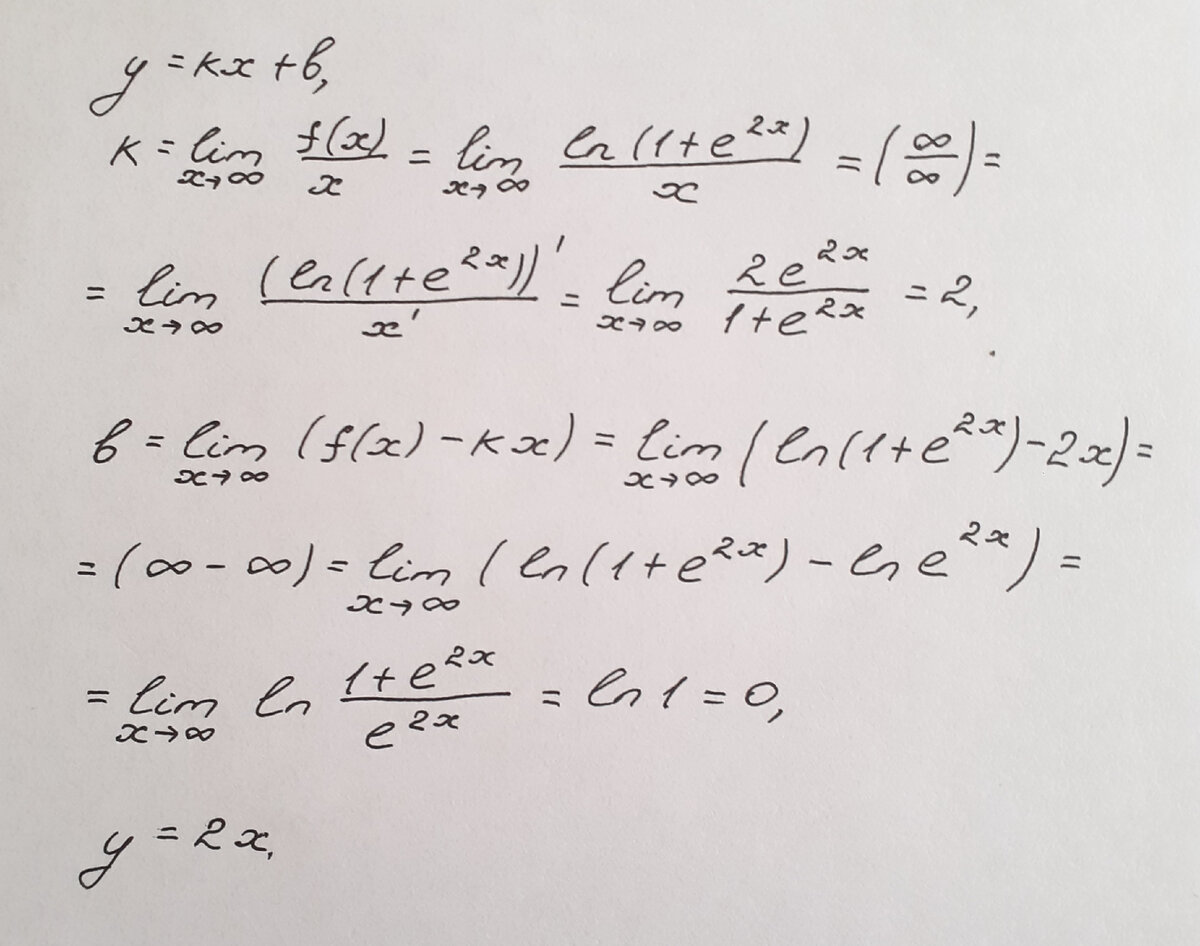 y = kx + b,
k = lim x→∞ f(x)/x = lim x→∞ ln(1+e^{2x})/x = (∞/∞) =
= lim x→∞ (ln(1+e^{2x}))'/x' = lim x→∞ 2e^{2x}/(1+e^{2x}) = 2,
b = lim x→∞ (f(x) - kx) = lim x→∞ (ln(1+e^{2x}) - 2x) =
= (∞ - ∞) = lim x→∞ (ln(1+e^{2x}) - ln e^{2x}) =
= lim x→∞ ln (1+e^{2x})/e^{2x} = ln 1 = 0,
y = 2x.